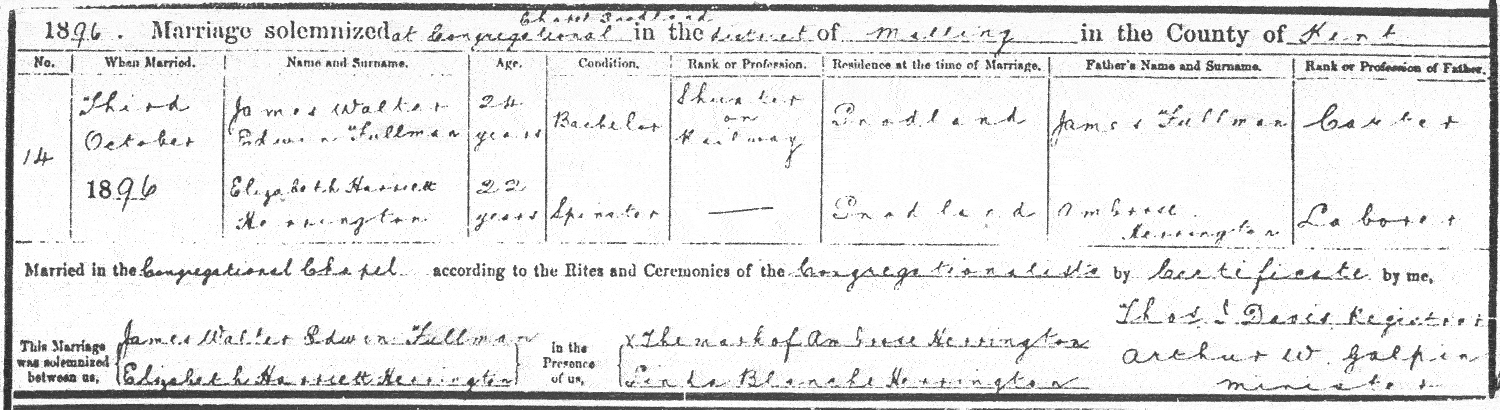 Chapel Snodland
1896. Marriage solemnized at Congregational in the district of Malling in the County of Kent
No. When Married. Name and Surname. Age. Condition. Rank or Profession. Residence at the time of Marriage. Father's Name and Surname. Rank or Profession of Father.
14 Third October 1896 James Walter Edwin Fullman 24 years Bachelor Shunter on Railway Snodland James Fullman Carter
Elizabeth Harriett Herrington 22 years Spinster — Snodland Ambrose Herrington Laborer
Married in the Congregational Chapel according to the Rites and Ceremonies of the Congregationalists by Certificate by me,
Thos J Davis Registrar
This Marriage was solemnized between us, James Walter Edwin Fullman
Elizabeth Harriett Herrington
in the Presence of us, X The mark of Ambrose Herrington
Linda Blanche Herrington
Arthur W. Galpin
Minister